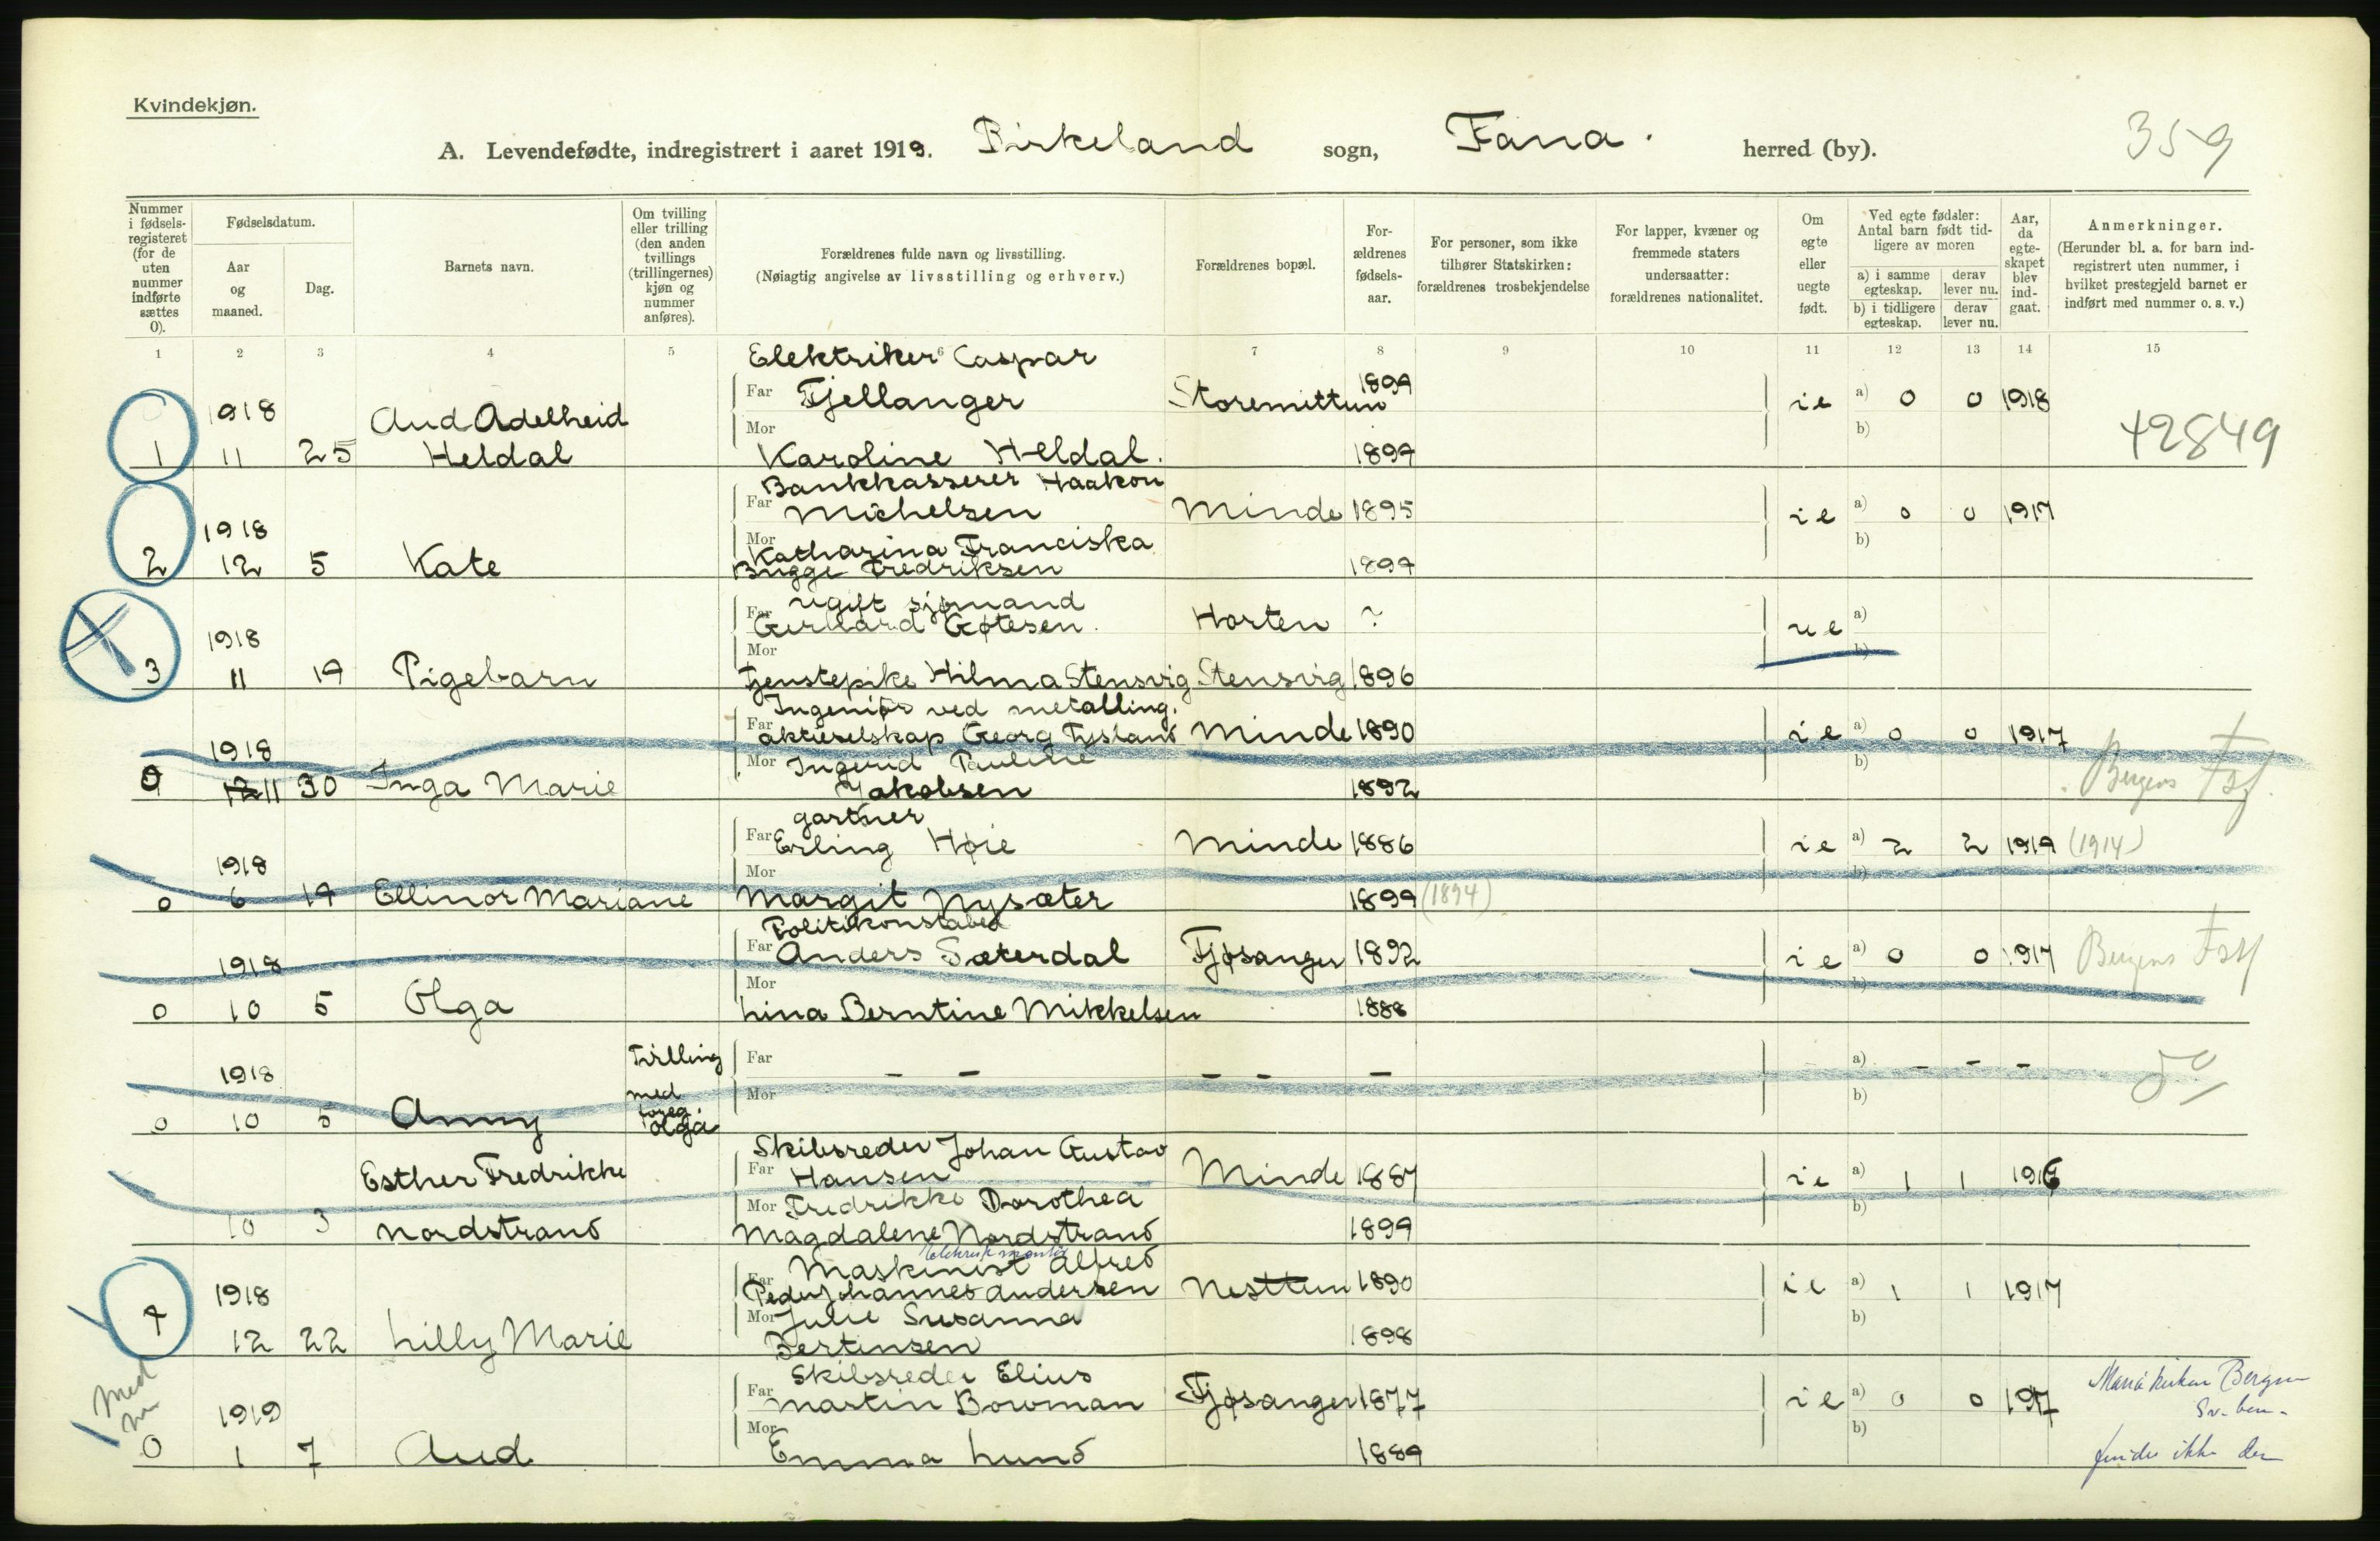 Kvindekjøn.
A. Levendefødte, indregistrert i aaret 1919. Birkeland sogn, Fana. herred (by). 359
Nummer i fødsels-registeret (for de uten nummer indførte sættes 0).
Fødselsdatum.
Aar og maaned.
Dag.
Barnets navn.
Om tvilling eller trilling (den anden tvillings (trillingernes) kjøn og nummer anføres).
Forældrenes fulde navn og livsstilling.
(Nøiagtig angivelse av livsstilling og erhverv.)
Forældrenes bopæl.
For-ældrenes fødsels-aar.
For personer, som ikke tilhører Statskirken: forældrenes trosbekjendelse
For lapper, kvæner og fremmede staters undersaatter: forældrenes nationalitet.
Om egte eller uegte født.
Ved egte fødsler: Antal barn født tid-ligere av moren
a) i samme egteskap. derav lever nu.
b) i tidligere egteskap. derav lever nu.
Aar, da egte-skapet blev ind-gaat.
Anmerkninger.
(Herunder bl. a. for barn ind-registrert uten nummer, i hvilket prestegjeld barnet er indført med nummer o. s. v.)
1 2 3 4 5 6 7 8 9 10 11 12 13 14 15
Elektriker Caspar
1918 Aud Adelheid Far Fjellanger Storemittun 1899 ie a) 0 0 1918
Mor b) 42849
1 11 25 Heldal Karoline Heldal. 1899
Bankkasserer Haakon
Far Michelsen Minde 1895 ie a) 0 0 1917
1918 Mor Katharina Franciska b)
2 12 5 Kate Bugge Fredriksen 1899
ugift sjømand
Far Gerhard Gøtesen. Horten ? ue a)
1918 Mor b)
3 11 19 Pigebarn tjenstepike Hilma Stensvig Stensvig 1896
Ingeniør ved metalling.
Far aktieselskap Georg Fysland Minde 1890 ie a) 0 0 1917
1918 Mor Ingerid Pauline b)
0 12 11 30 Inga Marie Jakobsen 1892 Bergens
gartner
Far Erling Høie Minde 1886 ie a) 2 2 1919 (1914)
1918 Mor b)
0 6 19 Ellinor Mariane Margit Nysæter 1899 (1894)
Politikonstabel
Far Anders Sæterdal Fjøsanger 1892 ie a) 0 0 1917 Bergens
1918 Mor b)
0 10 5 Olga Lina Berntine Mikkelsen 1888
1918 Tvilling Far - - - - - a) - - -
med Mor b) do
0 10 5 Anny foreg. Olga
Skibsreder Johan Gustav
Esther Fredrikke Far Hansen Minde 1887 ie a) 1 1 1916
Mor Fredrikke Dorothea b)
10 3 Nordstrand Magdalene Nordstrand 1899
Elektrisk montør
Maskinist Alfred
1918 Far Peder Johannes Andersen Nesttun 1890 ie a) 1 1 1917
Mor Julie Susanna b)
4 12 22 Lilly Marie Bertinsen 1898
Skibsreder Elius
Med 1919 Far Martin Bowman Fjøsanger 1877 ie a) 0 0 1917 Mariakirken Bergen
Mor b)
0 1 7 Aud Emma Lund 1889 findes ikke der